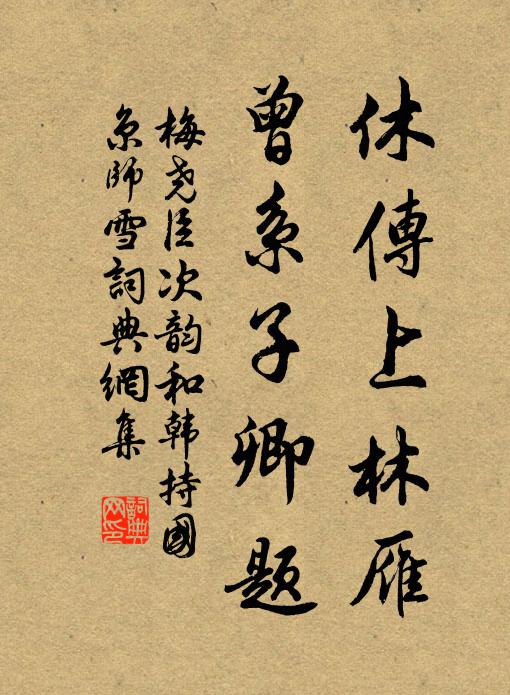 休傳上林雁
曾系子卿题
梅尧臣次韵和韩持國
京師雪詞典網集
詞典
网印